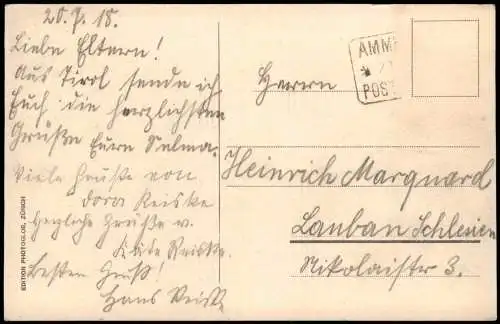 20.7.18.
Liebe Eltern!
Aus Tirol sende ich
Euch die herzlichsten
Grüße Eure Selma.
Viele Grüße von
dora Reiske
Herzliche Grüße v.
Reiske.
besten Gruß!
Hans Reiske
EDITION PHOTOGLOB, ZÜRICH
AMM
POST
Herrn
Heinrich Marquard
Lauban Schlesien
Nikolaistr 3.